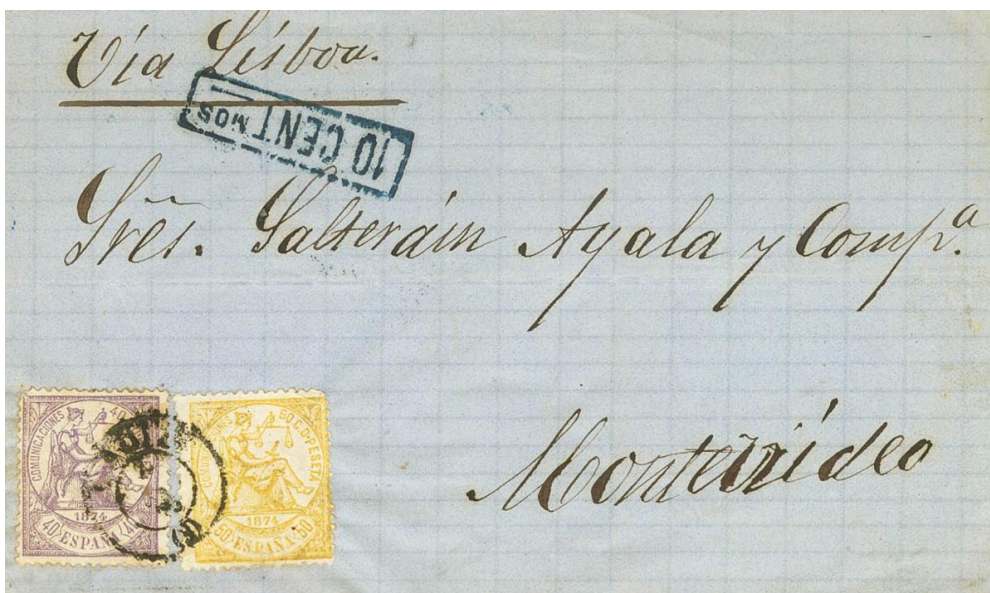 Vía Lisboa.
10 CENTMOS
Sres. Salteráin Ayala y Compª.
Montevideo
COMUNICACIONES 40
1874
40 ESPAÑA 40
50 C. D PESETA
1874
50 ESPAÑA 50